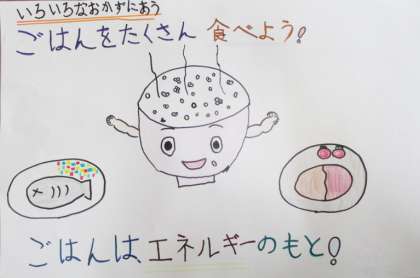 いろいろなおかずにあう
ごはんをたくさん 食べよう!
ごはんは エネルギーのもと!